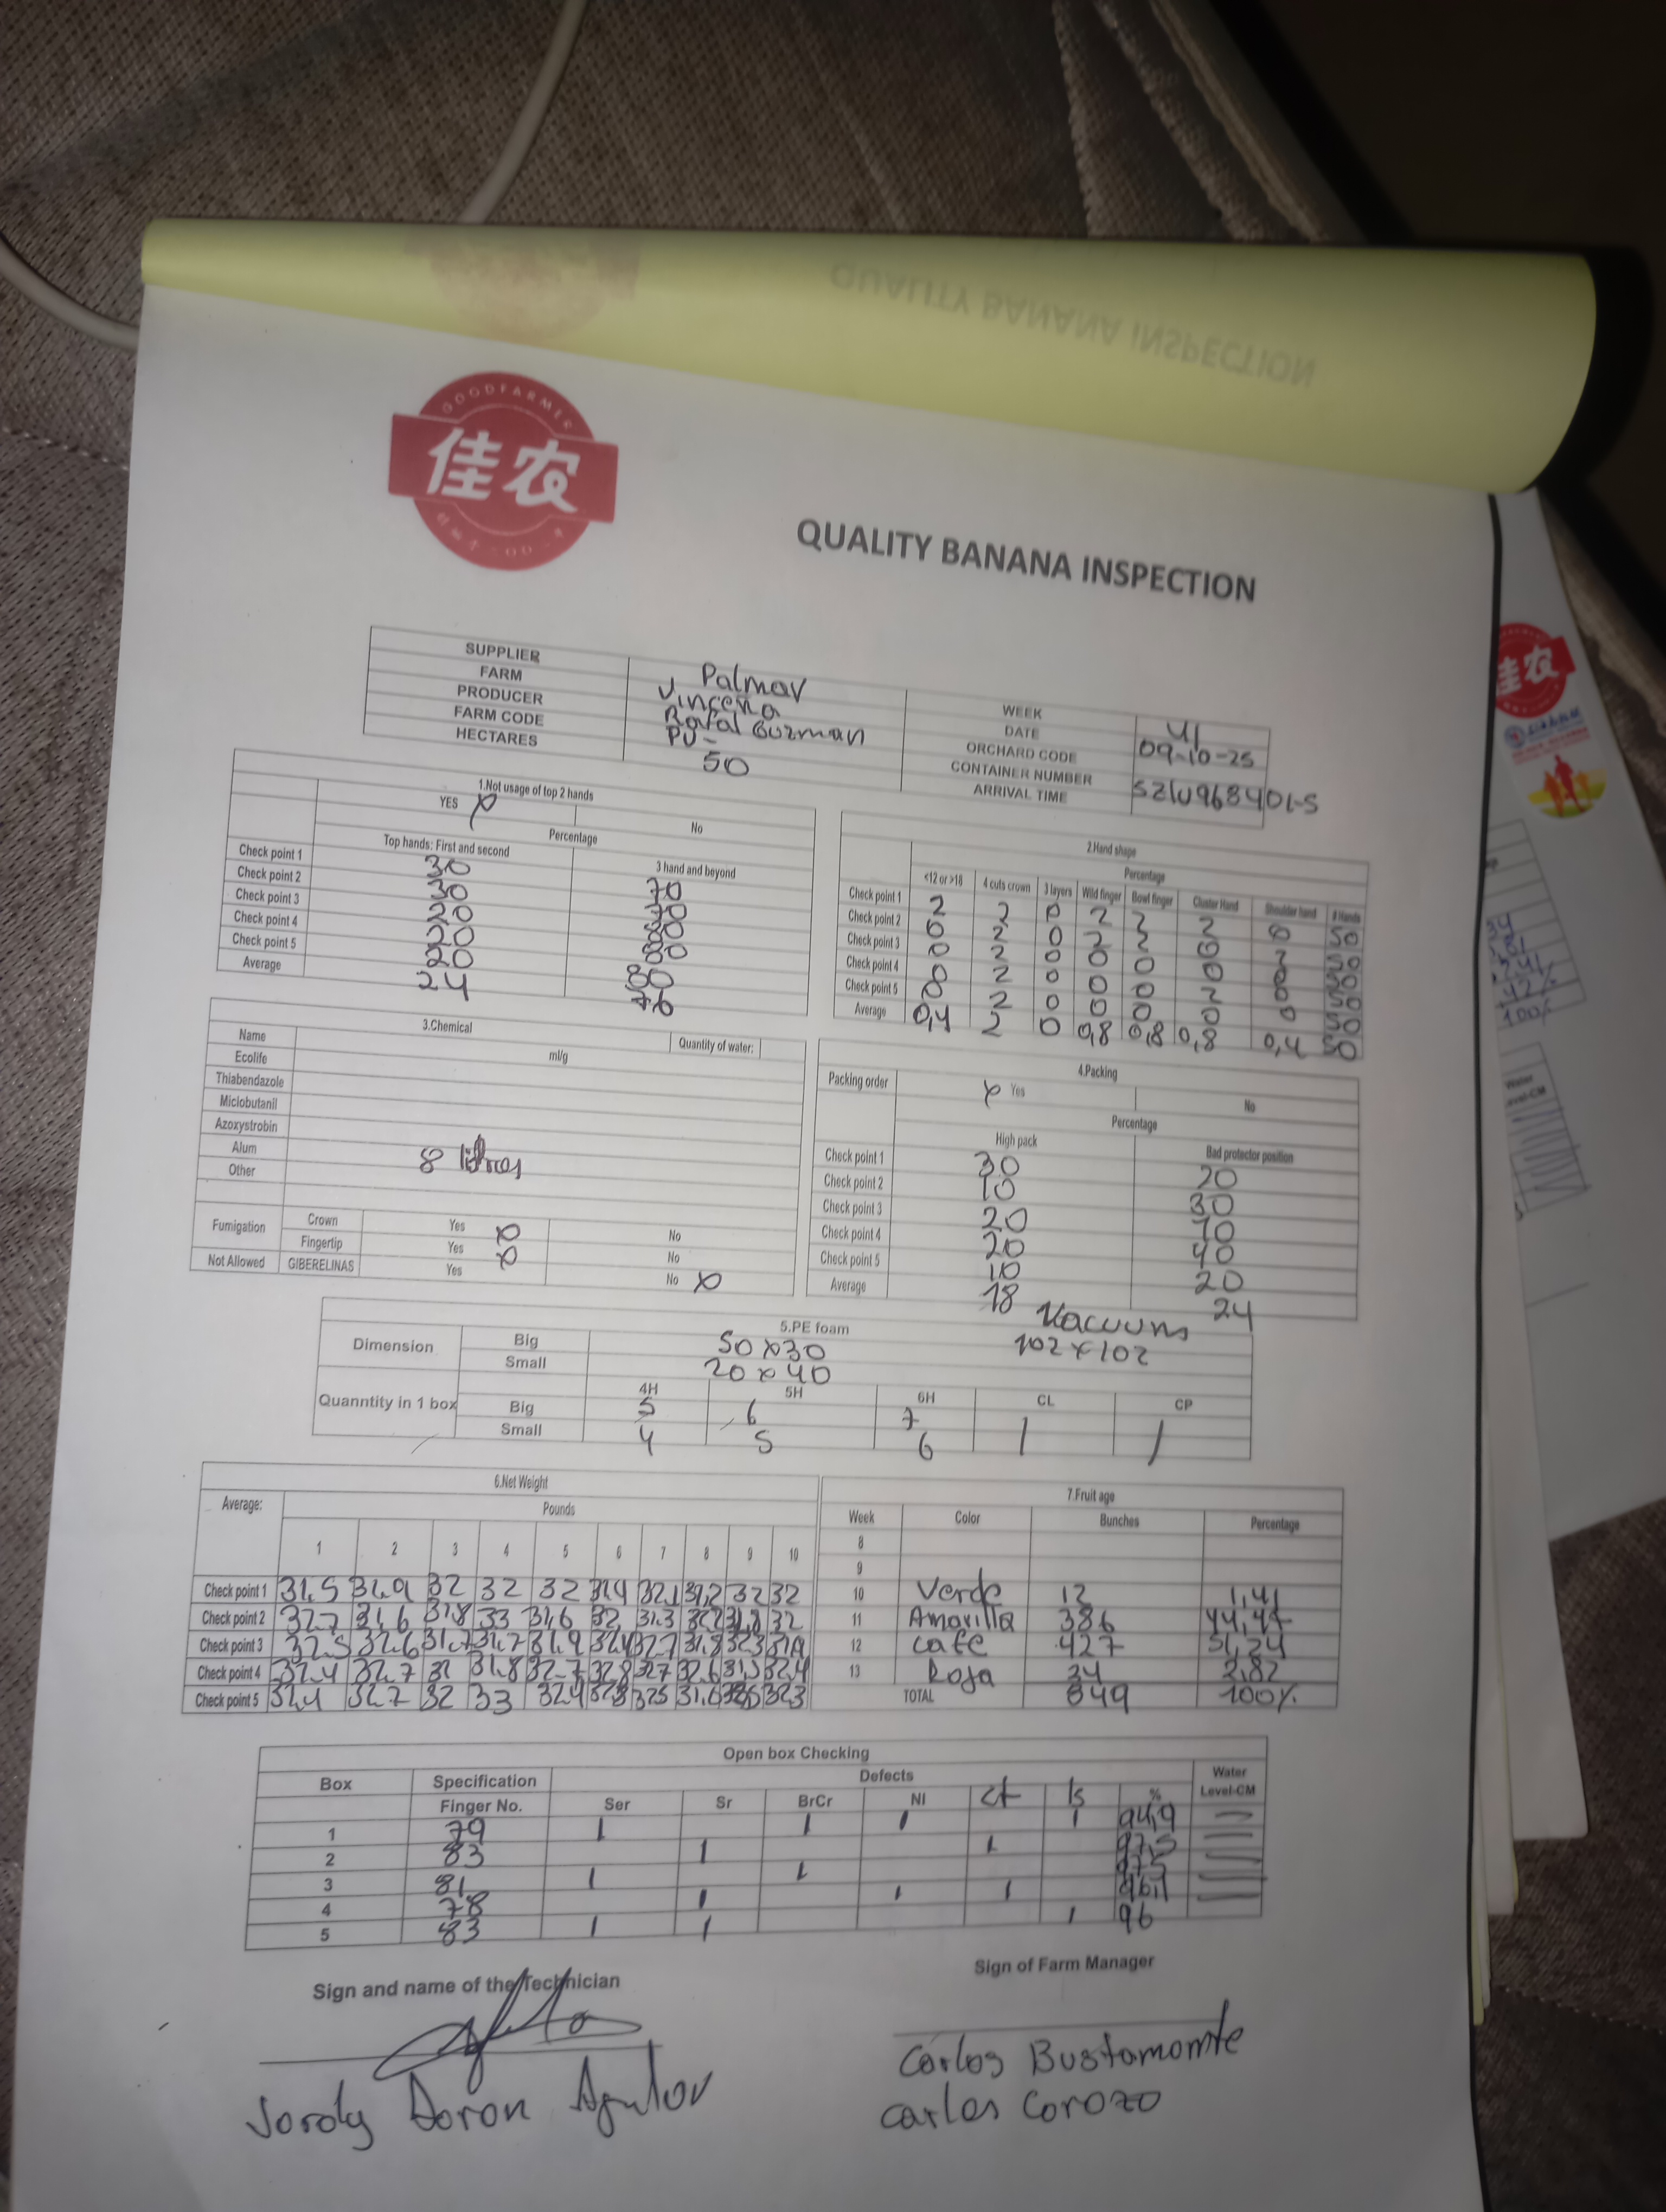 QUALITY BANANA INSPECTION
GOODFARMER
佳农
QUALITY BANANA INSPECTION
SUPPLIER Palmar
FARM Vinceña
PRODUCER Rafal Guzman
FARM CODE PV-
HECTARES 50
WEEK 41
DATE 09-10-25
ORCHARD CODE
CONTAINER NUMBER SZLU968401-5
ARRIVAL TIME
1.Not usage of top 2 hands
YES x No
Percentage
Top hands: First and second 3 hand and beyond
Check point 1 30 70
Check point 2 30 70
Check point 3 20 80
Check point 4 20 80
Check point 5 20 80
Average 24 76
2.Hand shape
Percentage
<12 or >18 4 cuts crown 3 layers Wild finger Bowl finger Cluster Hand Shoulder hand # Hands
Check point 1 2 2 0 2 2 2 0 50
Check point 2 0 2 0 2 2 0 2 50
Check point 3 0 2 0 0 0 0 0 50
Check point 4 0 2 0 0 0 2 0 50
Check point 5 0 2 0 0 0 0 0 50
Average 0,4 2 0 0,8 0,8 0,8 0,4 50
3.Chemical
Name ml/g Quantity of water:
Ecolife
Thiabendazole
Miclobutanil
Azoxystrobin
Alum 8 litros
Other
Fumigation Crown Yes x No
Fingertip Yes x No
Not Allowed GIBERELINAS Yes No x
4.Packing
Packing order x Yes No
Percentage
High pack Bad protector position
Check point 1 30 20
Check point 2 10 30
Check point 3 20 10
Check point 4 20 40
Check point 5 10 20
Average 18 24
5.PE foam Vacuum
Dimension Big 50x30 102x102
Small 20x40
Quanntity in 1 box 4H 5H 6H CL CP
Big 5 6 7
Small 4 5 6
6.Net Weight
Average: Pounds
1 2 3 4 5 6 7 8 9 10
Check point 1 31.5 31.9 32 32 32 32.1 31,2 32 32
Check point 2 32.7 31.6 31.8 33 31.6 32 31.3 32
Check point 3 32.5 32.6 31.7 31.7 31.9 32.4 32.7 31.8 32.3
Check point 4 32.4 32.7 32 31.8 32.7 32.8 32.7 32.6 32.4
Check point 5 32.4 32.7 32 33 32.4 32.5 31.6 32.3
7.Fruit age
Week Color Bunches Percentage
8
9
10 Verde 12 1,41
11 Amarilla 386 44,47
12 Cafe 427 51,24
13 Roja 34 2,82
TOTAL 849 100%
Open box Checking
Box Specification Defects Water
Finger No. Ser Sr BrCr NI ct ls % Level-CM
1 79 1 1 1 1 94,9
2 83 1 1 97,5
3 81 1 1 97,5
4 78 1 1 1 96,1
5 83 1 1 1 96
Sign and name of the Technician
Sign of Farm Manager
Carlos Bustamomte
Carlos Corozo